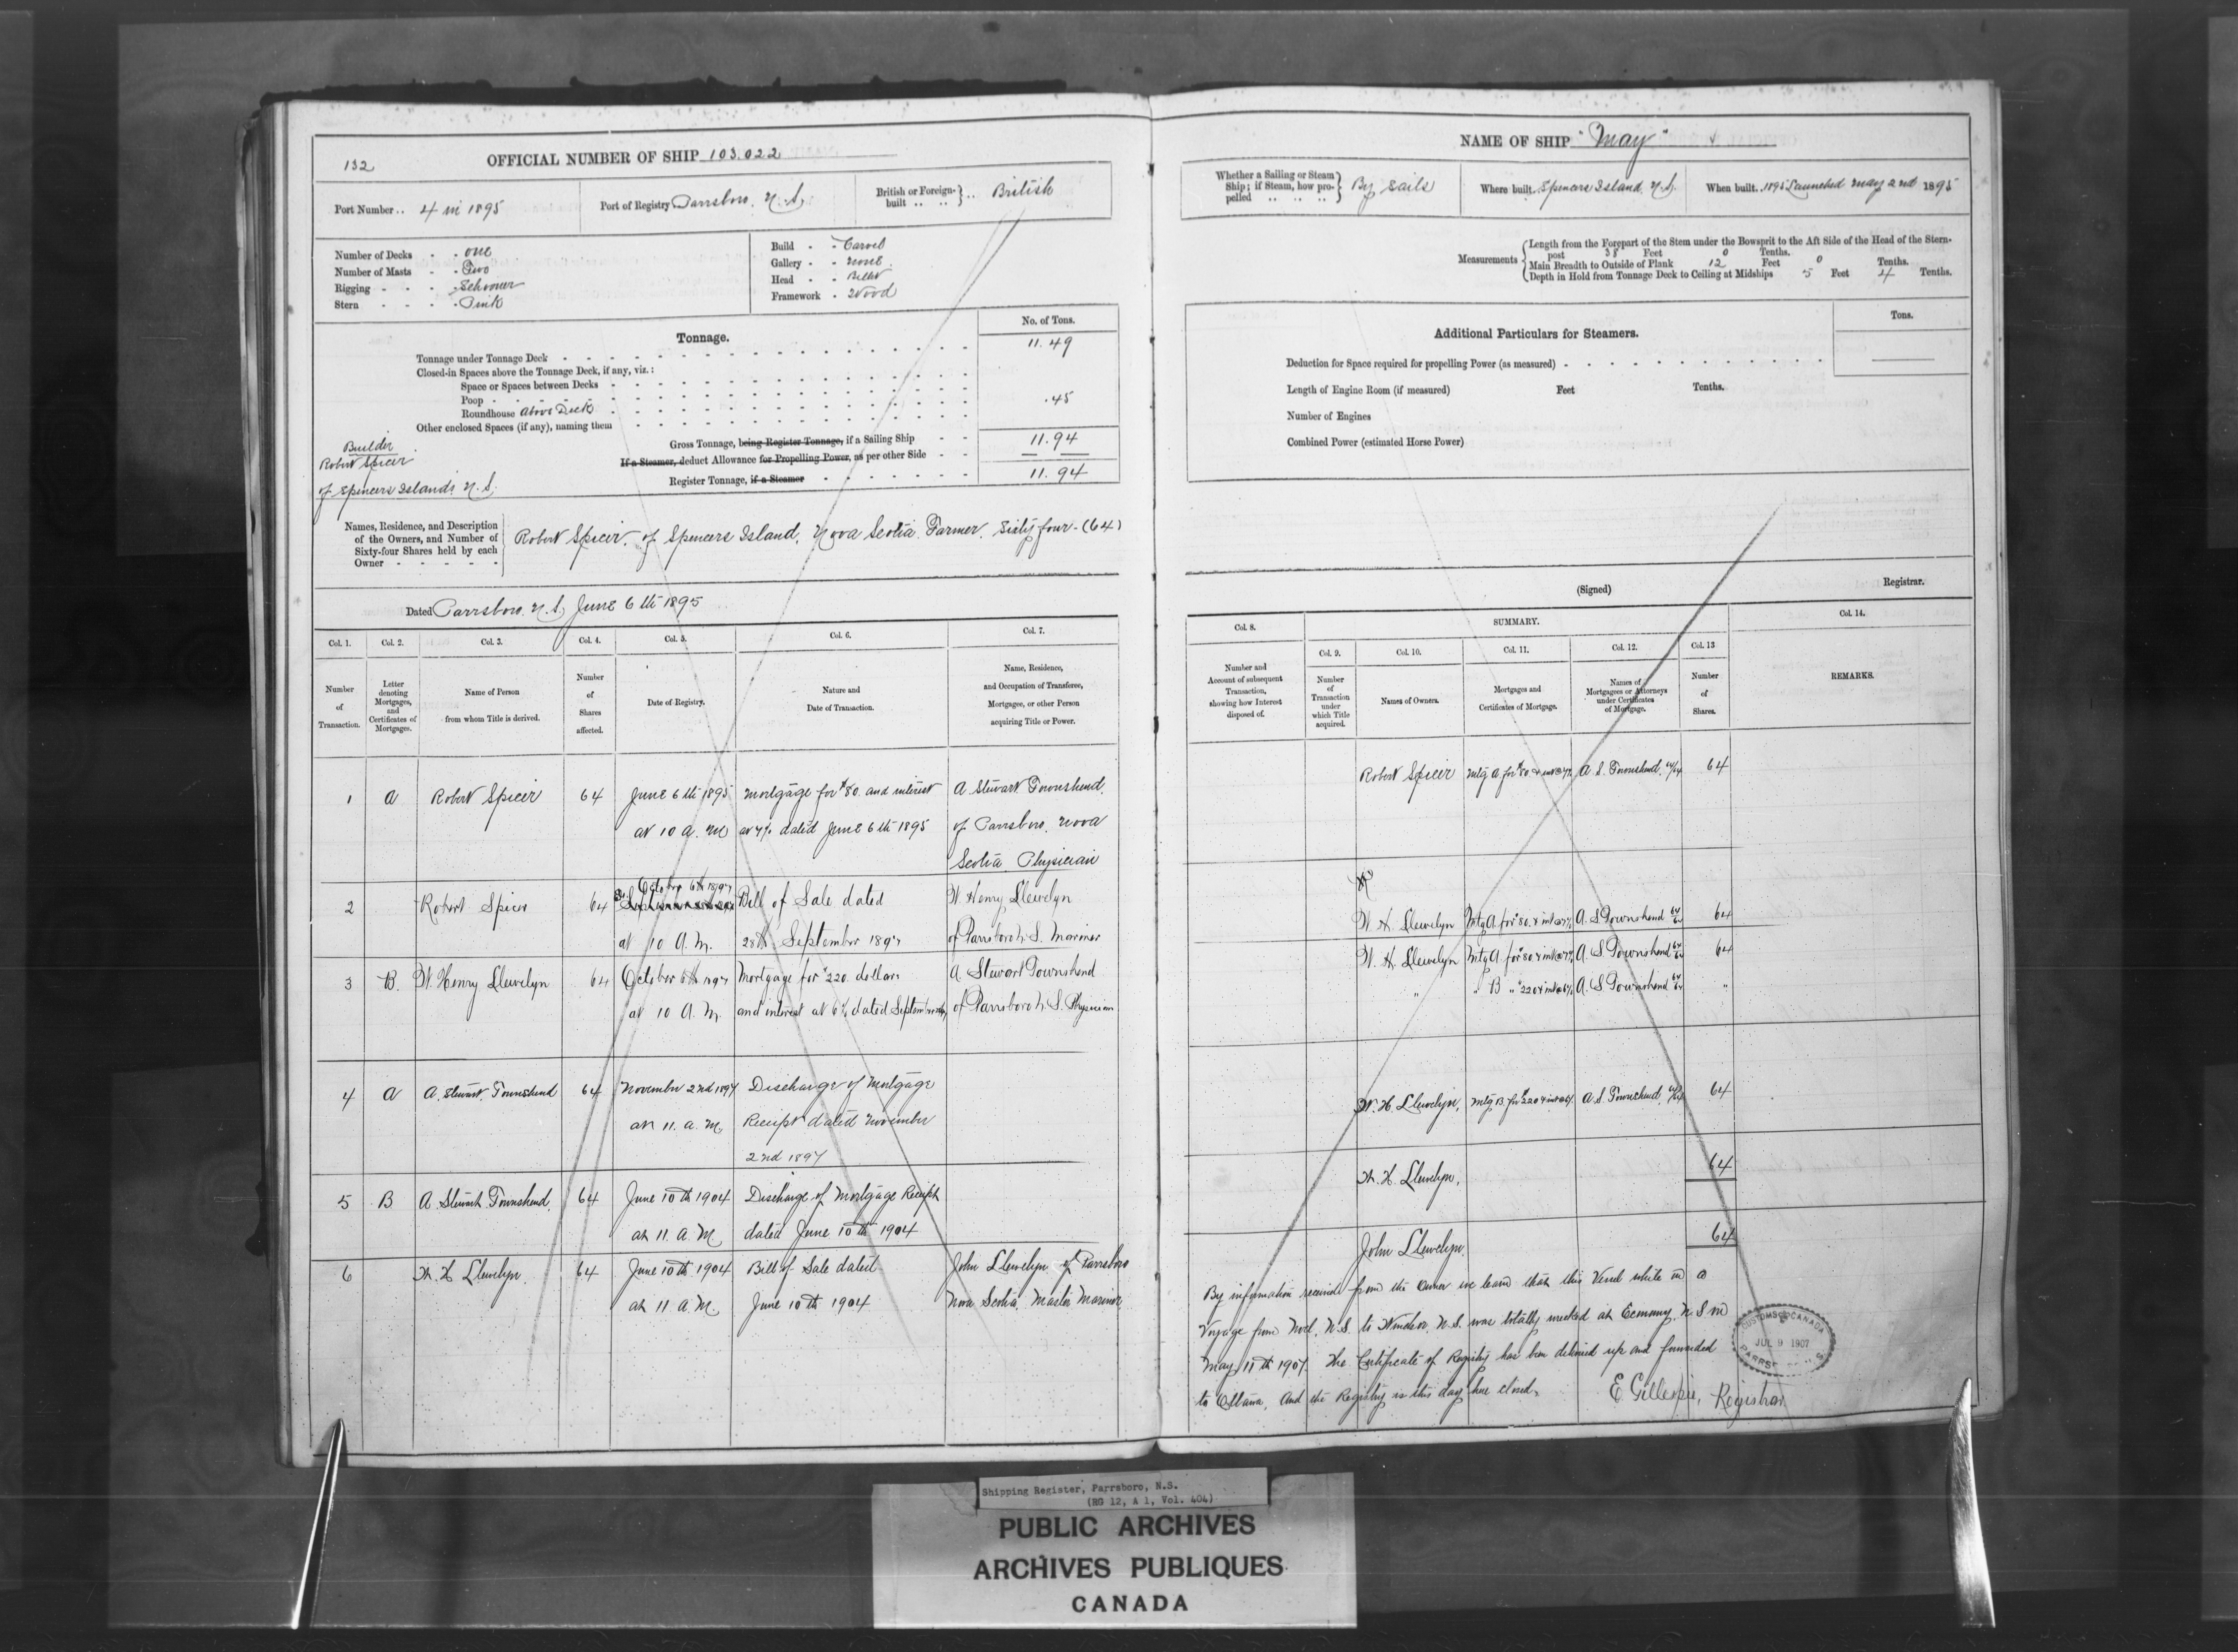 132
OFFICIAL NUMBER OF SHIP 103.022
Port Number .. 4 in 1895
Port of Registry Parrsboro, N.S.
British or Foreign-built .. .. } .. British
Number of Decks - - One
Number of Masts - - Two
Rigging - - - - Schooner
Stern - - - - Pink
Build - - Carvel
Gallery - - None
Head - - Billet
Framework - Wood
Tonnage.
No. of Tons.
Tonnage under Tonnage Deck 11.49
Closed-in Spaces above the Tonnage Deck, if any, viz.:
Space or Spaces between Decks
Poop
Roundhouse Above Deck .45
Other enclosed Spaces (if any), naming them
Gross Tonnage, being Register Tonnage, if a Sailing Ship - - 11.94
If a Steamer, deduct Allowance for Propelling Power, as per other Side - -
Register Tonnage, if a Steamer 11.94
Builder
Robert Spicer
of Spencers Island N.S.
Names, Residence, and Description
of the Owners, and Number of
Sixty-four Shares held by each
Owner - - - - -
Robert Spicer, of Spencers Island, Nova Scotia. Farmer. Sixty four - (64)
Dated Parrsboro, N.S, June 6th 1895
Col. 1. Col. 2. Col. 3. Col. 4. Col. 5. Col. 6. Col. 7.
Number of Transaction.
Letter denoting Mortgages, and Certificates of Mortgages.
Name of Person from whom Title is derived.
Number of Shares affected.
Date of Registry.
Nature and Date of Transaction.
Name, Residence, and Occupation of Transferee, Mortgagee, or other Person acquiring Title or Power.
1 A Robert Spicer 64 June 6th 1895 Mortgage for $80. and interest A Stewart Townshend.
at 10 a.m at 7% dated June 6th 1895 of Parrsboro, Nova
Scotia Physician
October 6th 1897
2 Robert Spicer 64 Bill of Sale dated W. Henry Llewelyn
at 10 A.M. 28th September 1897 of Parrsboro N.S. Mariner
3 B. W. Henry Llewelyn 64 October 6th 1897 Mortgage for $220. dollars A Stewart Townshend
at 10 A.M. and interest at 6% dated September of Parrsboro N.S. Physician
4 A A. Stewart Townshend 64 November 2nd 1897 Discharge of Mortgage
at 11. a.m, Receipt dated November
2nd 1897
5 B A. Stewart Townshend. 64 June 10th 1904 Discharge of Mortgage Receipt
at 11. A.M, dated June 10th 1904
6 W. H Llewelyn. 64 June 10th 1904 Bill of Sale dated John Llewelyn of Parrsboro
at 11 A.M. June 10th 1904 Nova Scotia, Master Mariner
NAME OF SHIP "May"
Whether a Sailing or Steam Ship; if Steam, how propelled .. .. .. } By Sails
Where built. Spencers Island, N.S.
When built. 1895 Launched May 2nd 1895
Measurements
Length from the Forepart of the Stem under the Bowsprit to the Aft Side of the Head of the Stern-
post 38 Feet 0 Tenths.
Main Breadth to Outside of Plank 12 Feet 0 Tenths.
Depth in Hold from Tonnage Deck to Ceiling at Midships 5 Feet 4 Tenths.
Additional Particulars for Steamers.
Tons.
Deduction for Space required for propelling Power (as measured)
Length of Engine Room (if measured) Feet Tenths.
Number of Engines
Combined Power (estimated Horse Power)
(Signed) Registrar.
Col. 8. SUMMARY. Col. 14.
Col. 9. Col. 10. Col. 11. Col. 12. Col. 13
Number and Account of subsequent Transaction, showing how Interest disposed of.
Number of Transaction under which Title acquired.
Names of Owners.
Mortgages and Certificates of Mortgage.
Names of Mortgagees or Attorneys under Certificates of Mortgage.
Number of Shares.
REMARKS.
Robert Spicer Mtg A for $80 & int @ 7% A. S. Townshend, 64/64 64
W. H. Llewelyn Mtg A. for $80. & int @ 7% A. S Townshend 64/64 64
W. H. Llewelyn Mtg A for $80 & int @ 7% A. S Townshend 64/64 64
" " B " $220 & int @ 6% A. S Townshend 64/64 "
W. H. Llewelyn, Mtg B. for $220 & int @ 6% A. S Townshend, 64/64 64
W. H. Llewelyn, 64
John Llewelyn. 64
By information received from the Owner we learn that this Vessel while on a
Voyage from Noel, N.S. to Windsor, N.S. was totally wrecked at Economy, N.S on
May, 11th 1907. The Certificate of Registry has been delivered up and forwarded
to Ottawa, And the Registry is this day here closed.
E Gillespie, Registrar
CUSTOMS CANADA
JUL 9 1907
Shipping Register, Parrsboro, N.S.
(RG 12, A 1, Vol. 404)
PUBLIC ARCHIVES
ARCHIVES PUBLIQUES
CANADA